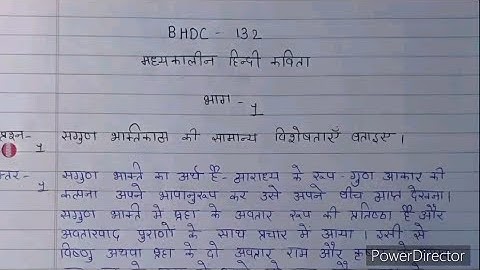 BHDC - 132
मध्यकालीन हिन्दी कविता
भाग - 1
प्रश्न- सगुण भक्तिकाल की सामान्य विशेषताएँ बताइए।
1
उत्तर- सगुण भक्ति का अर्थ है- आराध्य के रूप - गुण आकार की
1 कल्पना अपने भावानुरूप कर उसे अपने बीच व्याप्त देखना।
सगुण भक्ति में ब्रह्म के अवतार रूप की प्रतिष्ठा है और
अवतारवाद पुराणों के साथ प्रचार में आया। इसी से
विष्णु अथवा ब्रह्म के दो अवतार राम और
PowerDirector